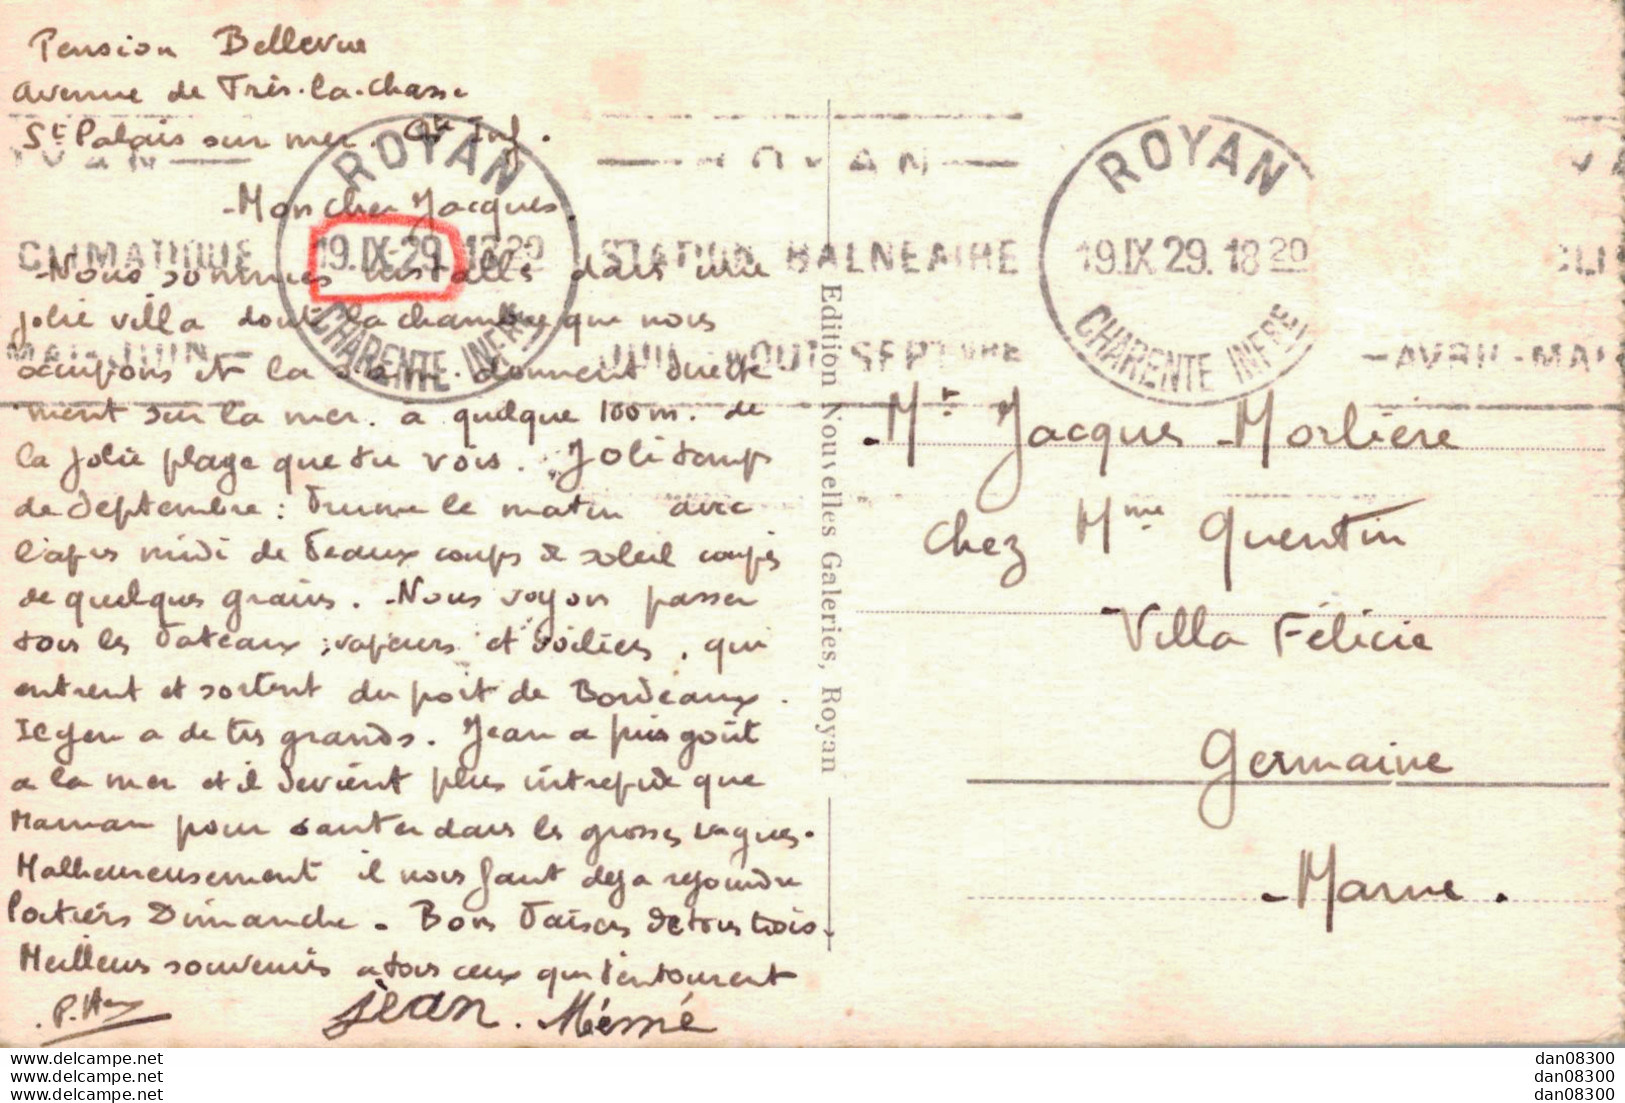 Pension Bellevue
avenue de Très-la-chasse
St Palais sur mer. Ch Inf.
Mon cher Jacques.
Nous sommes installés dans une
jolie villa dont la chambre que nous
occupons et la donnent directe
ment sur la mer. a quelque 100m. de
la jolie plage que tu vois. Joli temps
de septembre : brume le matin avec
l'après midi de beaux coups de soleil coupés
de quelques grains. Nous voyons passer
tous les bateaux, vapeurs et voiliers, qui
entrent et sortent du port de Bordeaux.
Il y en a de très grands. Jean a pris goût
a la mer et il devient plus intrépide que
Maman pour sauter dans les grosses vagues.
Malheureusement il nous faut deja rejoindre
Poitiers Dimanche. Bons baisers de tous trois.
Meilleurs souvenirs a tous ceux qui t'entourent
Jean. Mémé
ROYAN
19.IX-29. 18 20
CHARENTE INFRE
CLIMATIQUE
MAI-JUIN-
ROYAN
STATION BALNEAIRE
JUIL-AOUT-SEPTBRE
ROYAN
19.IX 29. 18 20
CHARENTE INFRE
CLI
-AVRIL-MAI
Edition Nouvelles Galeries, Royan
Mr Jacques Morlière
chez Mme Quentin
Villa Félicie
Germaine
Marne.
www.delcampe.net
www.delcampe.net
www.delcampe.net
dan08300
dan08300
dan08300